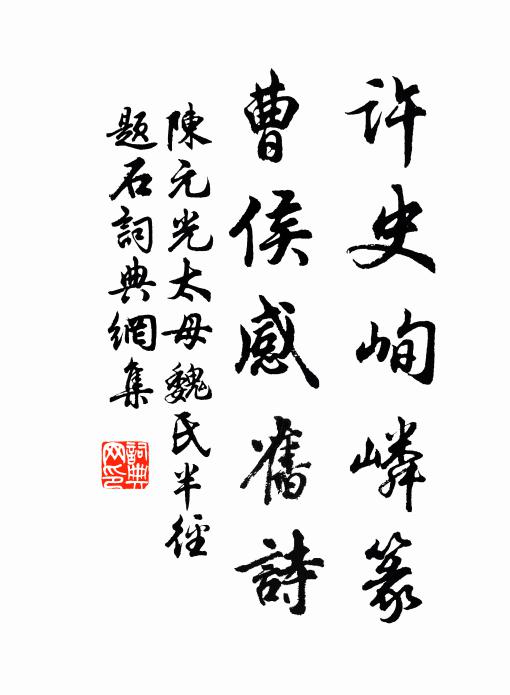 許史峋嶙篆
曹侯感舊詩
陳元光太母魏氏半徑
題石詞典網集
詞典网印